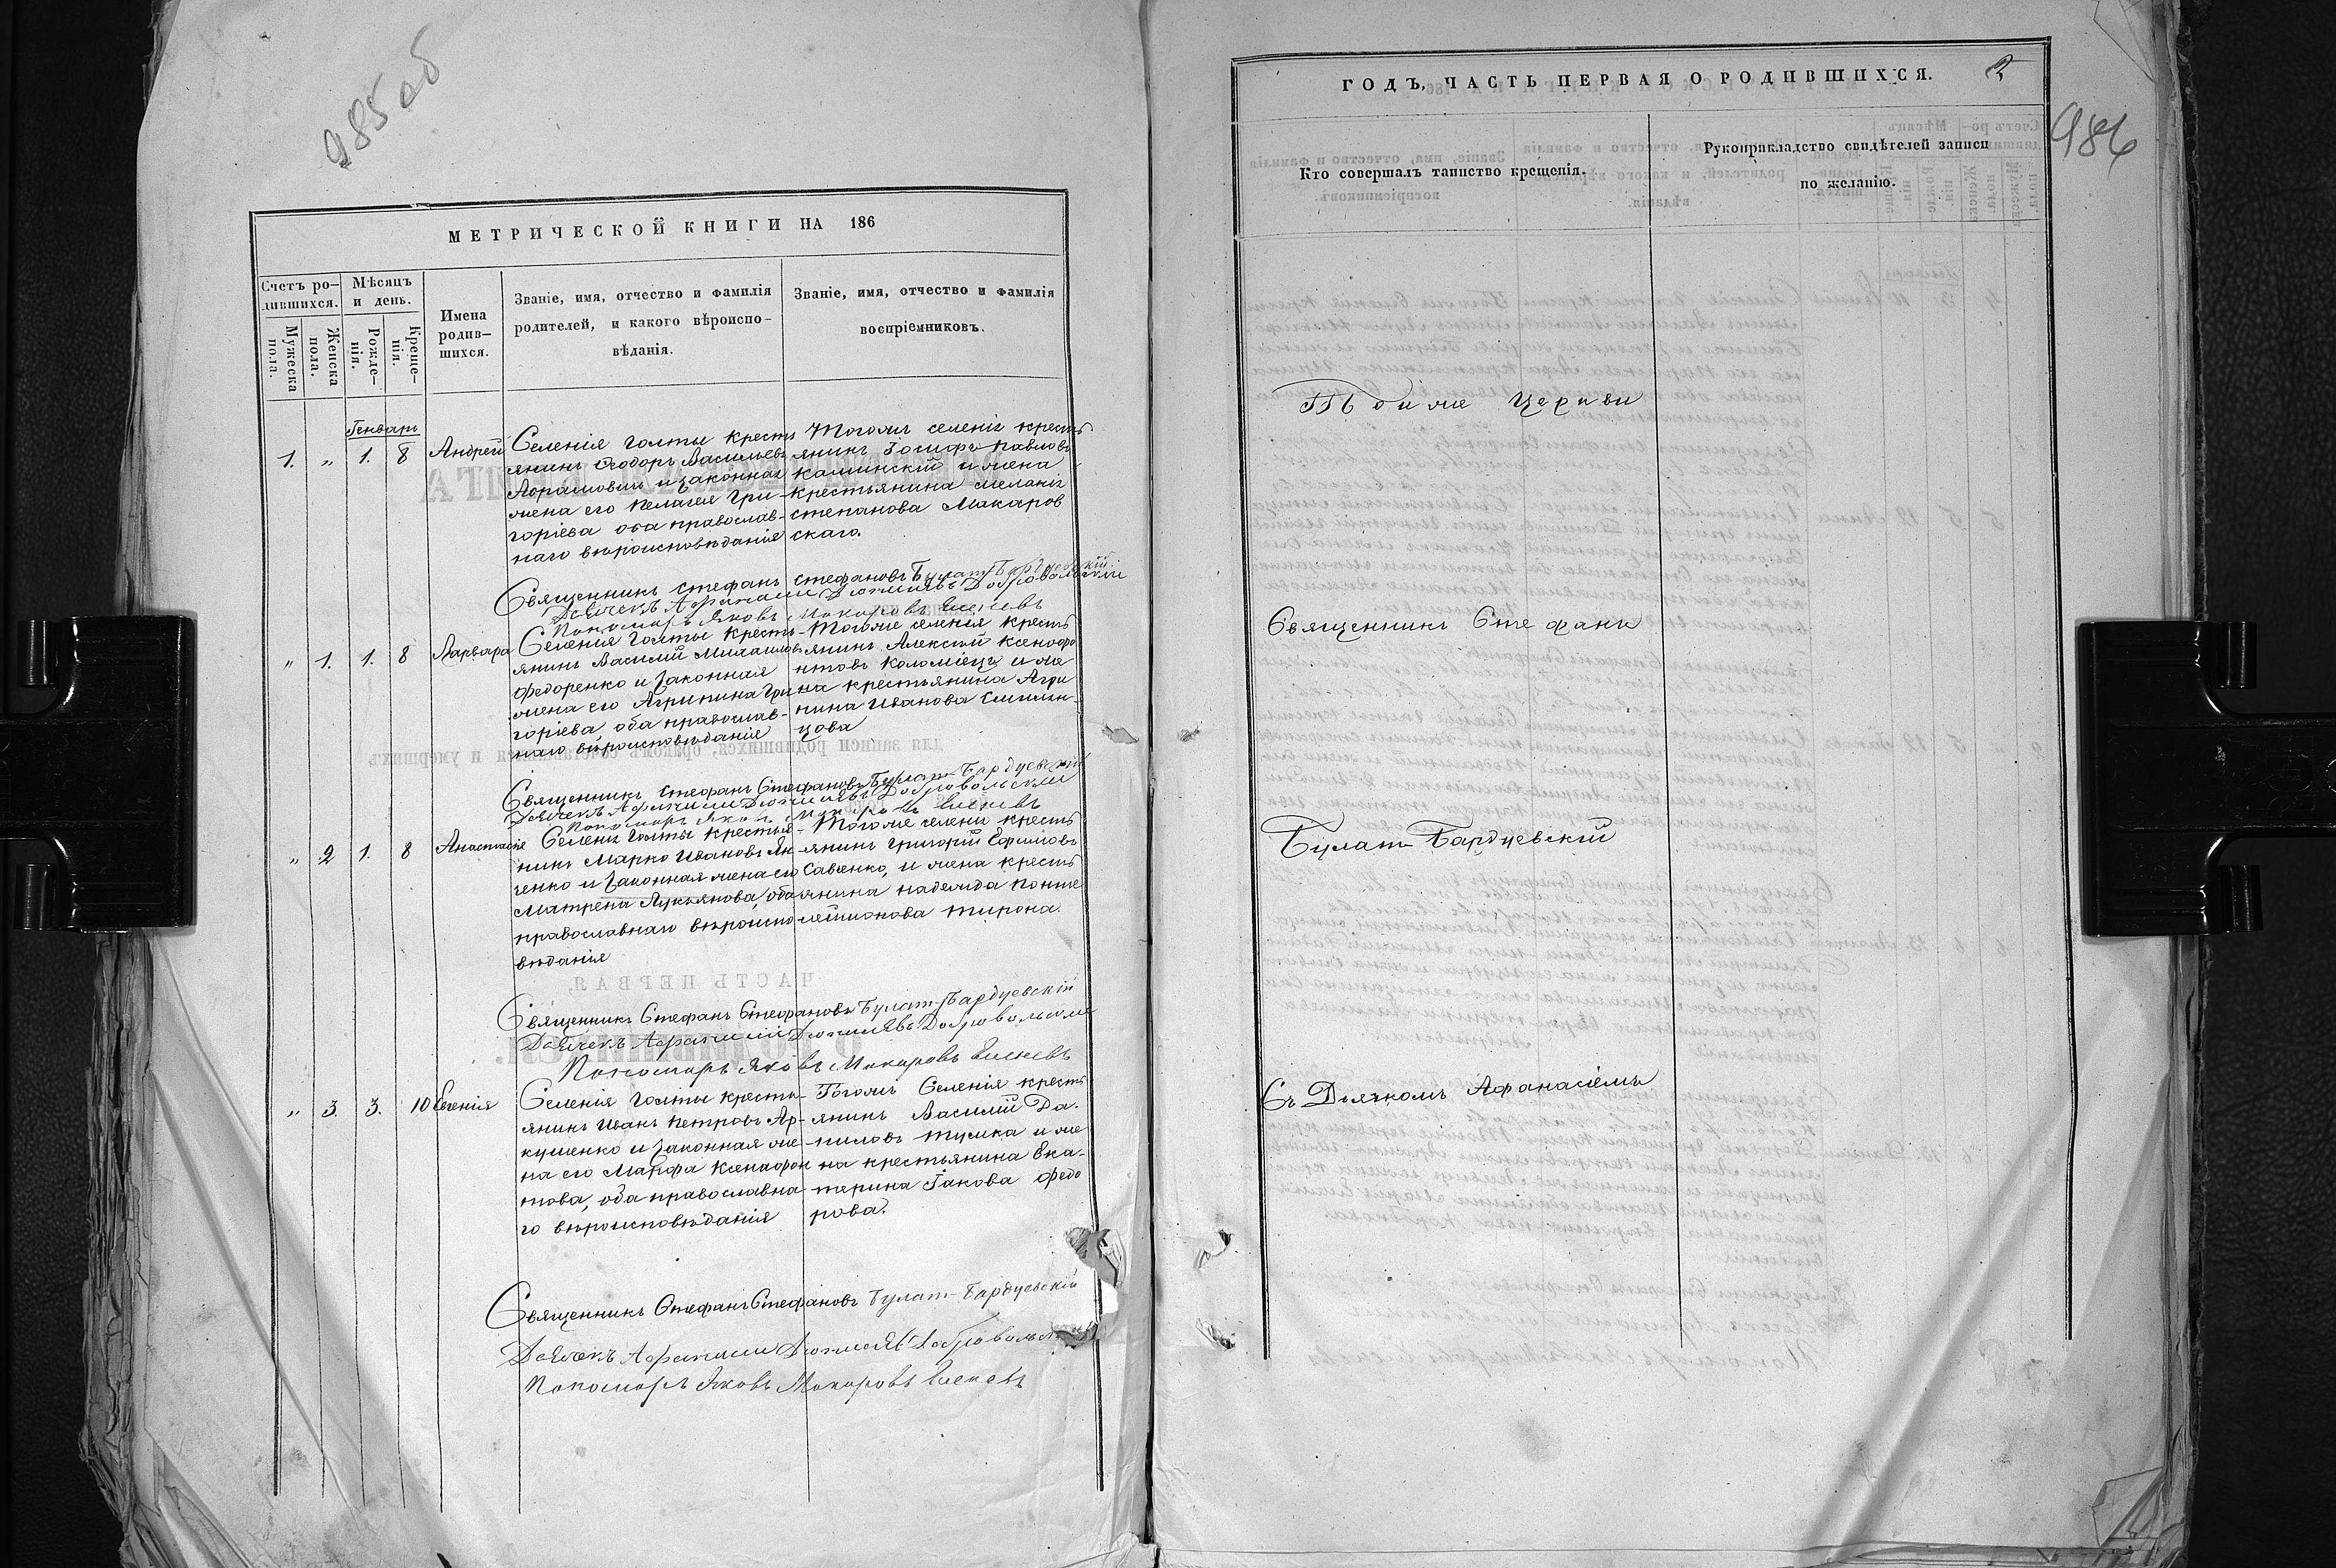 985 об
МЕТРИЧЕСКОЙ КНИГИ НА 186
Счетъ ро-
дившихся.
Мѣсяцъ
и день.
Мужеска
пола.
Женска
пола.
Рожде-
нія.
Креще-
нія.
Имена
родив-
шихся.
Званіе, имя, отчество и фамилія
родителей, и какого вѣроиспо-
вѣданія.
Званіе, имя, отчество и фамилія
воспріемниковъ.
Генварь
1. „ 1. 8 Андрей
Селенія Голты кресть
янинъ Ѳеодоръ Васильевъ
Абрамовичъ и законная
жена его Пелагея Гри-
горіева оба православ-
наго вѣроисповѣданія
Тогожъ селенія кресть
янинъ Іосифъ Павловъ
Калинскій и жена
крестьянина Меланія
Степанова Макаров
скаго.
Священникъ Стефанъ Стефановъ Булат-Бардуевскій
Дьячекъ Афанасий Добровольский
Пономарь Яковъ Макаровъ
„ 1. 1. 8 Варвара
Селенія Голты кресть-
янинъ Василій Михаиловъ
Федоренко и законная
жена его Агрипина Гри
горіева, оба православ-
наго вѣроисповѣданія
Тогоже селенія кресть
янинъ Алексѣй Ксенофо
нтовъ Коломіецъ и же
на крестьянина Агри
пина Иванова
цова
Священникъ Стефанъ Стефановъ Булат-Бардуевскій
Дьячекъ Афанасий Добровольский
Пономарь Яковъ Макаровъ
„ 2 1. 8 Анастасія
Селенія Голты крестья-
нинъ Марко Ивановъ Ян-
ченко и законная жена его
Матрена Лукьянова, оба
православнаго вѣроиспо
вѣданія
Тогоже селенія кресть
янинъ Григорій Ефимовъ
Савченко, и жена кресть
янина Надежда Панте
леймонова Тирона.
Священникъ Стефанъ Стефановъ Булат-Бардуевскій
Дьячекъ Афанасий Добровольский
Пономарь Яковъ Макаровъ
„ 3. 3. 10 Евгенія
Селенія Голты кресть-
янинъ Иванъ Петровъ Яр-
кушенко и законная же-
на его Марфа Ксенофон
това, оба православна-
го вѣроисповѣданія
Тогожъ Селенія кресть
янинъ Василій Да-
ниловъ Тумка и же
на крестьянина Ека-
терина Іакова Федо
рова.
Священникъ Стефанъ Стефановъ Булат-Бардуевскій
Дьячекъ Афанасий
Пономарь Яковъ Макаровъ
ГОДЪ, ЧАСТЬ ПЕРВАЯ О РОДИВШИХСЯ. 2
986
Кто совершалъ таинство крещенія.
Рукоприкладство свидѣтелей записи
по желанію.
Тойже Церкви
Священникъ Стефанъ
Булат-Бардуевскій
Съ Дьячкомъ Афанасіемъ